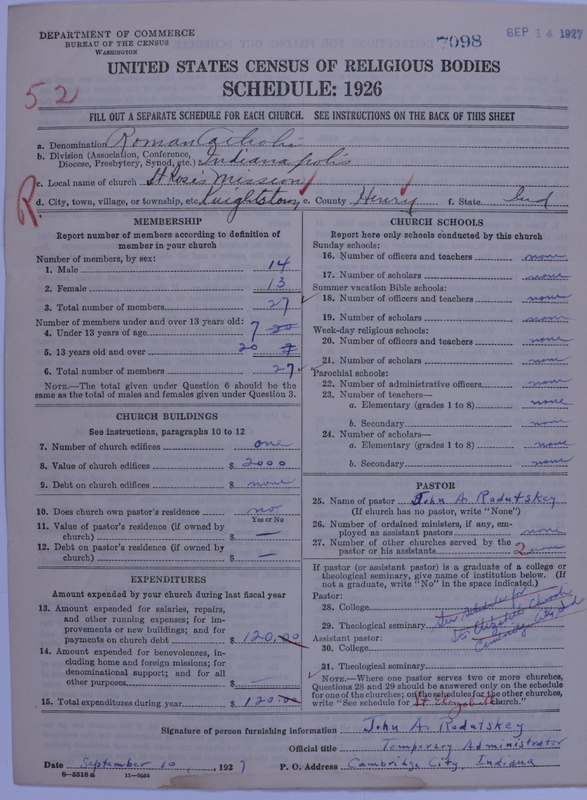 DEPARTMENT OF COMMERCE
BUREAU OF THE CENSUS
WASHINGTON
7098
SEP 14 1927
UNITED STATES CENSUS OF RELIGIOUS BODIES
SCHEDULE: 1926
52
FILL OUT A SEPARATE SCHEDULE FOR EACH CHURCH. SEE INSTRUCTIONS ON THE BACK OF THIS SHEET
a. Denomination Roman Catholic
b. Division (Association, Conference, Diocese, Presbytery, Synod, etc.) Indianapolis
c. Local name of church St Rose's Mission
R. d. City, town, village, or township, etc. Knightstown, e. County Henry f. State Ind
MEMBERSHIP
Report number of members according to definition of
member in your church
Number of members, by sex:
1. Male 14
2. Female 13
3. Total number of members 27
Number of members under and over 13 years old:
4. Under 13 years of age 7 20
5. 13 years old and over 20 7
6. Total number of members 27
NOTE.—The total given under Question 6 should be
same as the total of males and females given under Question 3.
CHURCH BUILDINGS
See instructions, paragraphs 10 to 12
7. Number of church edifices one
8. Value of church edifices $ 2000
9. Debt on church edifices $ none
10. Does church own pastor's residence? no
Yes or No
11. Value of pastor's residence (if owned by
church) $ —
12. Debt on pastor's residence (if owned by
church) $ —
EXPENDITURES
Amount expended by your church during last fiscal year
13. Amount expended for salaries, repairs,
and other running expenses; for im-
provements or new buildings; and for
payments on church debt $ 120.00
14. Amount expended for benevolences, in-
cluding home and foreign missions; for
denominational support; and for all
other purposes $ —
15. Total expenditures during year $ 120.00
CHURCH SCHOOLS
Report here only schools conducted by this church
Sunday schools:
16. Number of officers and teachers none
17. Number of scholars none
Summer vacation Bible schools:
18. Number of officers and teachers none
19. Number of scholars none
Week-day religious schools:
20. Number of officers and teachers none
21. Number of scholars none
Parochial schools:
22. Number of administrative officers none
23. Number of teachers—
a. Elementary (grades 1 to 8) none
b. Secondary none
24. Number of scholars—
a. Elementary (grades 1 to 8) none
b. Secondary none
PASTOR
25. Name of pastor John A. Rodutskey
(If church has no pastor, write "None")
26. Number of ordained ministers, if any, em-
ployed as assistant pastors none
27. Number of other churches served by the
pastor or his assistants 2 none
If pastor (or assistant pastor) is a graduate of a college or
theological seminary, give name of institution below. (If
not a graduate, write "No" in the space indicated.)
Pastor:
28. College
29. Theological seminary
See schedule for
St. Elizabeth Church
Cambridge City, Ind
Assistant pastor:
30. College
31. Theological seminary
NOTE.—Where one pastor serves two or more churches,
Questions 28 and 29 should be answered only on the schedule
for one of the churches; on the schedules for the other churches,
write "See schedule for St. Elizabeth church."
Signature of person furnishing information John A. Rodutskey
Official title Temporary Administrator
Date September 10, 1927 P. O. Address Cambridge City, Indiana
8—5518a 11—9034